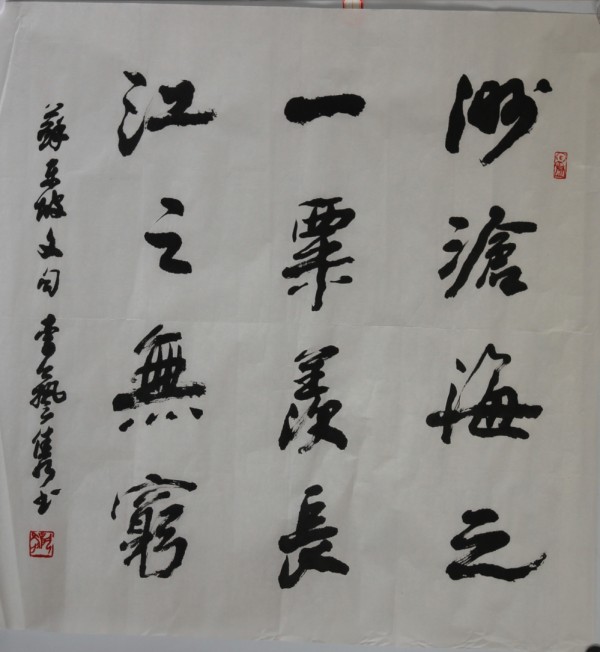 渺滄海之
一粟羨長
江之無窮
蘇東坡文句 書